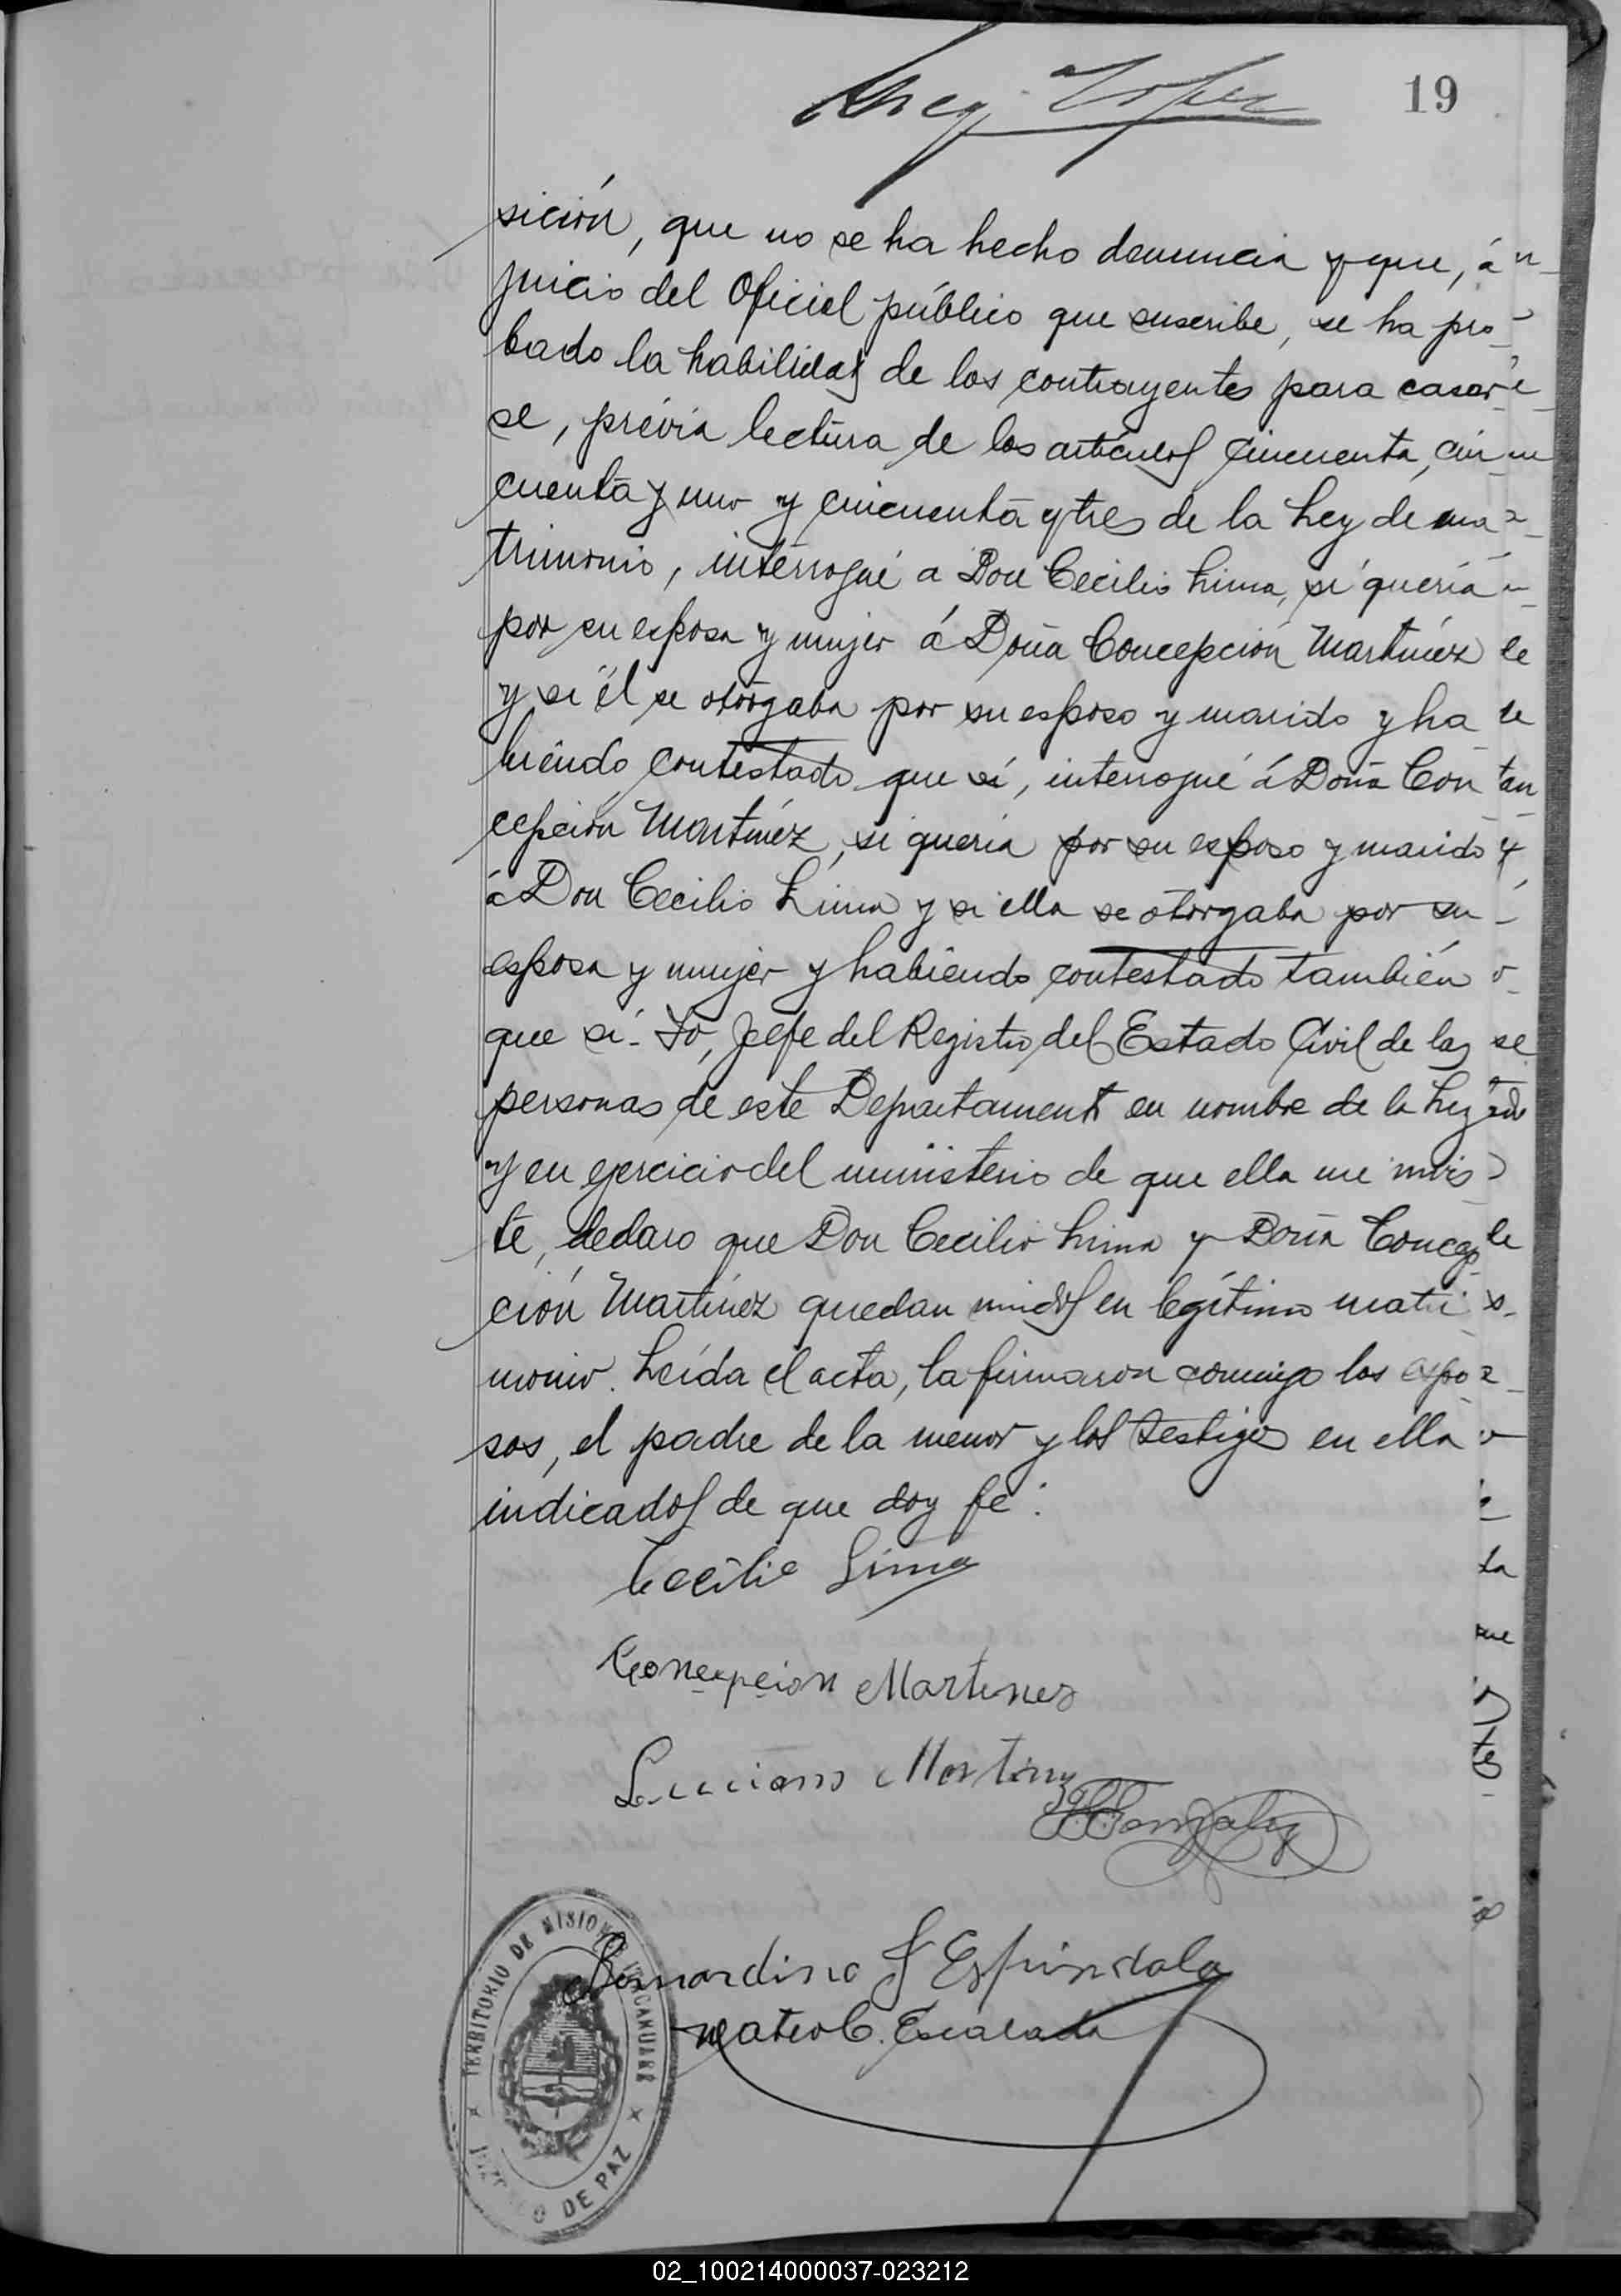 19
sición, que no se ha hecho denuncia y que, á
juicio del Oficial público que suscribe, se ha pro-
bado la habilidad de los contrayentes para casar-
se, prévia lectura de los artículos cincuenta, cin-
cuenta y uno y cincuenta y tres de la Ley de ma-
trimonio, interrogué a Don Cecilio Lima, si quería
por su esposa y mujer á Doña Concepción Martínez
y si él se otorgaba por su esposo y marido y ha
biendo contestado que sí, interrogué á Doña Con
cepción Martínez, si quería por su esposo y marido
á Don Cecilio Lima y si ella se otorgaba por su
esposa y mujer y habiendo contestado también
que sí. Yo, Jefe del Registro del Estado Civil de las
personas de este Departamento en nombre de la Ley
y en ejercicio del ministerio de que ella me invis
te, declaro que Don Cecilio Lima y Doña Concep
ción Martínez quedan unidos en legítimo matri
monio. Leída el acta, la firmaron conmigo los espo
sos, el padre de la menor y los testigos en ella
indicados de que doy fé.
Cecilio Lima
Concepcion Martines
Luciano Martinez
Gonzalez
Bernardino F Espindola
Mateo C. Escalada
TERRITORIO DE MISIONES
JUZGADO DE PAZ
02_100214000037-023212